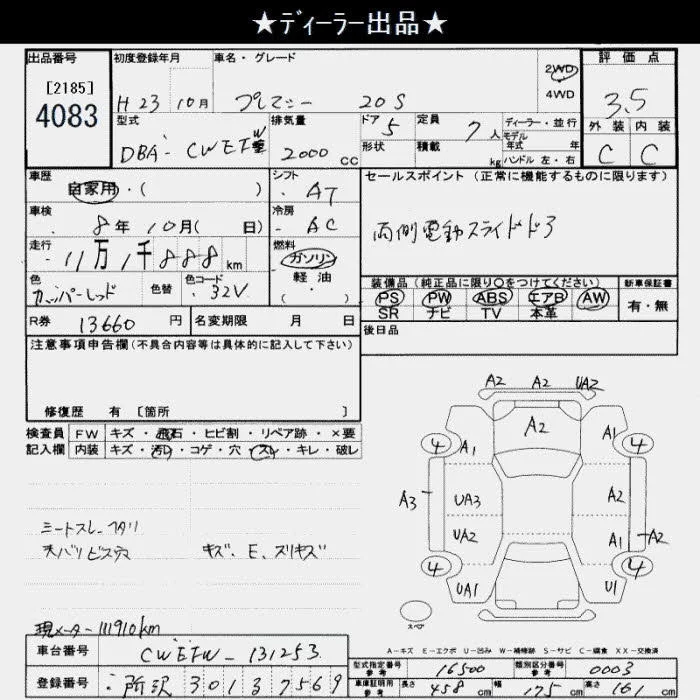 ★ディーラー出品★
出品番号
[2185]
4083
初度登録年月
H23 10月
車名・グレード
プレマシー 20S
2WD
4WD
評価点
3.5
外装 内装
C C
型式
DBA-CWEFW
排気量
2000 cc
ドア 5
形状
定員 7人
積載 kg
ディーラー・並行
モデル
年式 年
ハンドル 左・右
車歴
自家用・( )
シフト
AT
車検
8年10月( 日)
冷房
AC
走行
11万1千888km
燃料
ガソリン
軽・油
( )
色
カッパーレッド
色替
色コード
32V
セールスポイント (正常に機能するものに限ります)
両側電動スライドドア
装備品(純正品に限り○をつけてください)
PS PW ABS エアB AW
SR ナビ TV 本革
新車保証書
有・無
後日品
R券 13660円
名変期限 月 日
注意事項申告欄(不具合内容等は具体的に記入して下さい)
修復歴 有 [箇所 ]
検査員
記入欄
FW キズ・飛石・ヒビ割・リペア跡・×要
内装 キズ・汚レ・コゲ・穴・スレ・キレ・破レ
シートスレ
天バリビス穴
キズ、E、スリキズ
現メーター111910km
A2 A2 UA2
4 A1 A2 A1 4
A3 UA3 A2
UA2 A1 A2
4 UA1 U1 4
スペア
A-キズ E-エクボ U-凹み W-補修跡 S-サビ C-腐食 XX-交換済
車台番号
CWEFW-131253
登録番号
所沢 301 ひ 7569
型式指定番号
参考
16500
類別区分番号
参考
0003
車庫証明用
参考
長さ 458 cm
幅 175 cm
高さ 161 cm